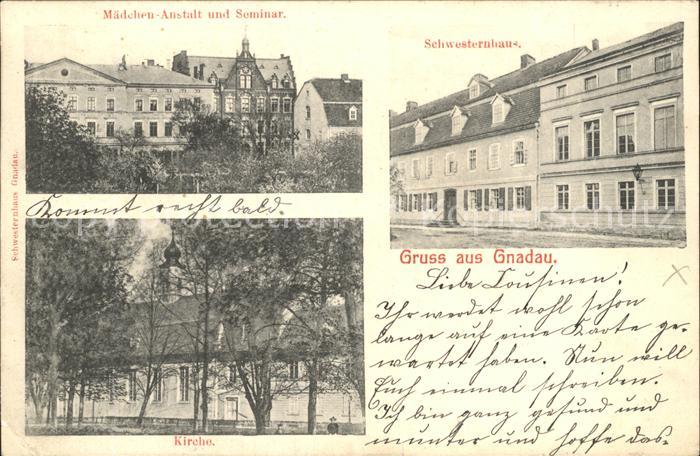 Mädchen-Anstalt und Seminar.
Schwesternhaus.
Schwesternhaus Gnadau.
Kommt recht bald.
Gruss aus Gnadau.
Liebe Cousinen!
Ihr werdet wohl schon
lange auf eine Karte ge-
wartet haben. Nun will
Euch einmal schreiben.
Ich bin ganz gesund und
munter und hoffe das-
Kirche.